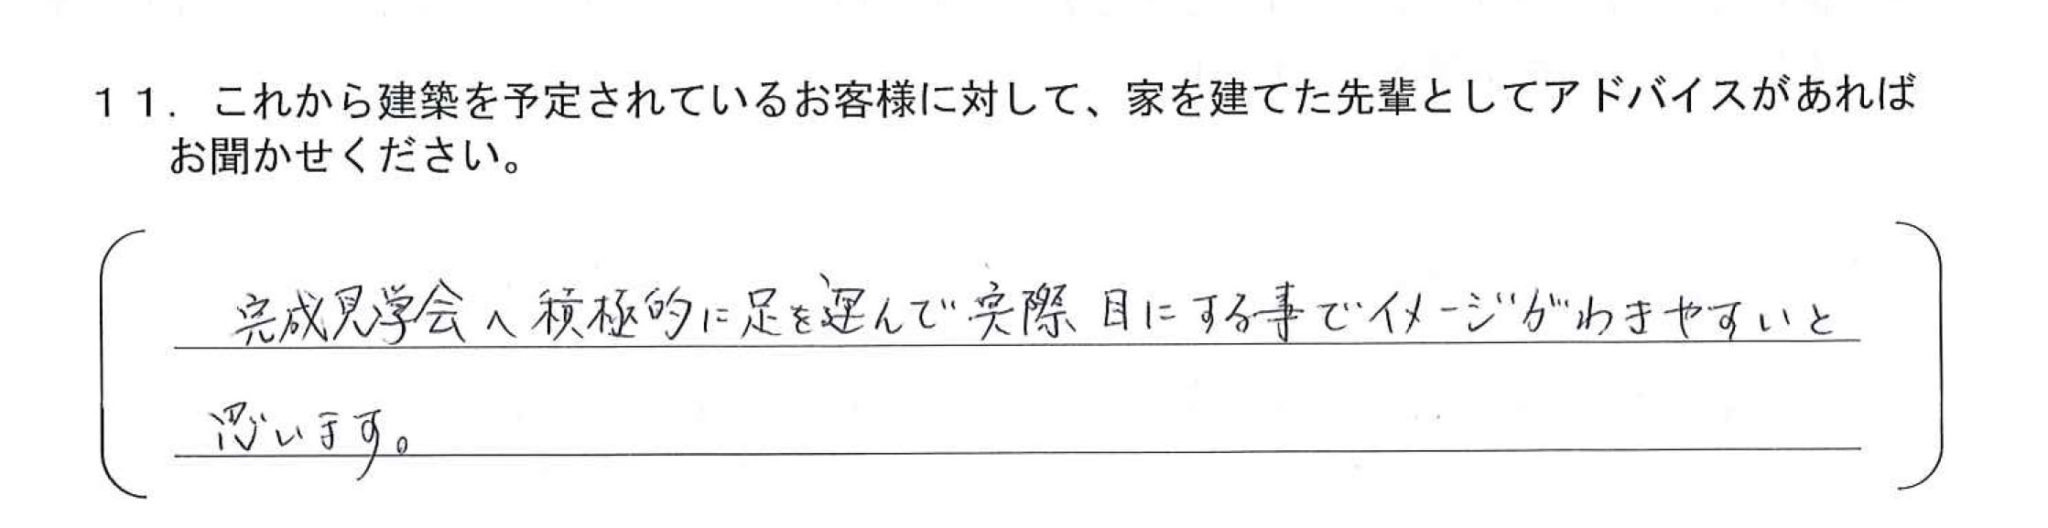 １１．これから建築を予定されているお客様に対して、家を建てた先輩としてアドバイスがあれば
お聞かせください。
完成見学会へ積極的に足を運んで実際目にする事でイメージがわきやすいと
思います。